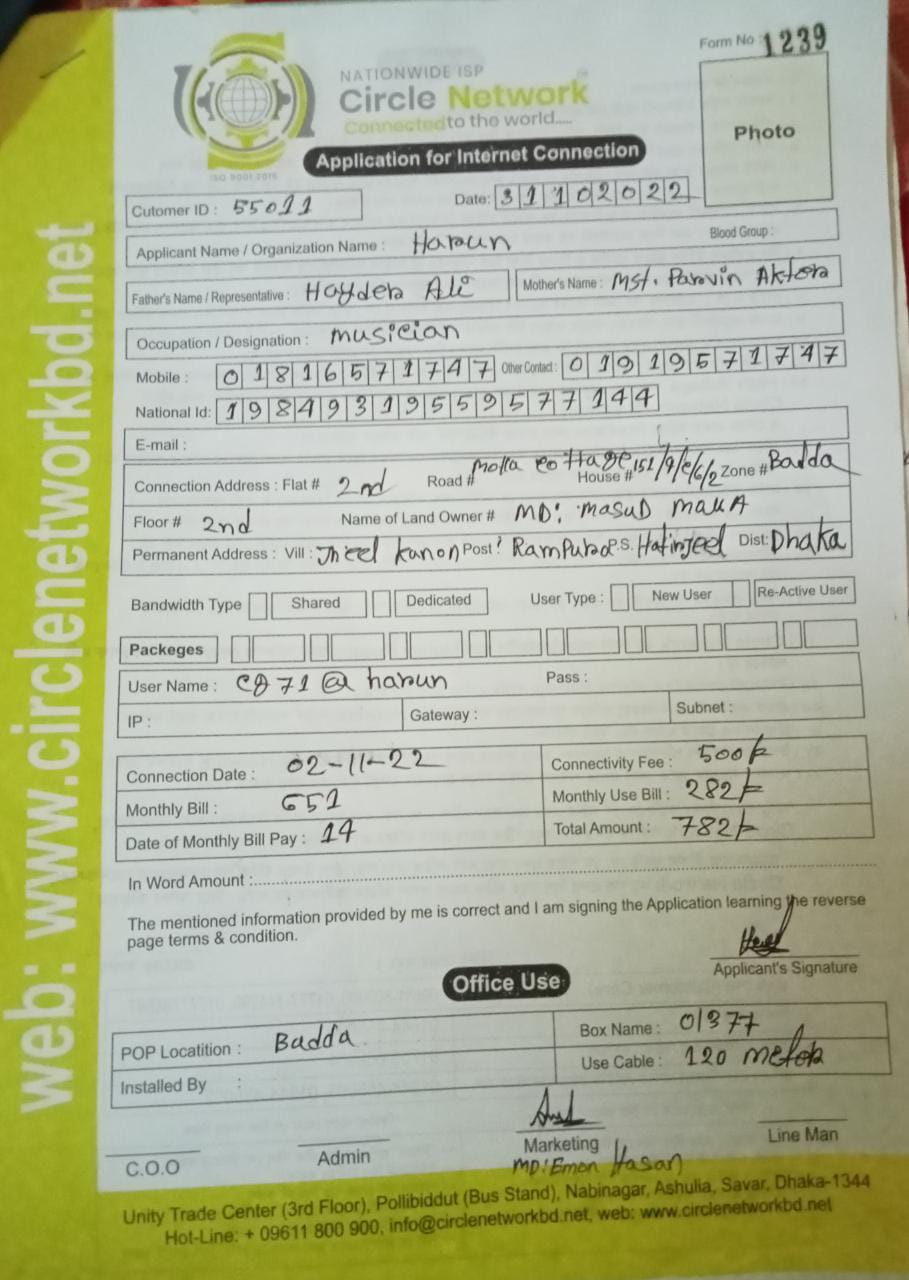 Form No : 1239
NATIONWIDE ISP
Circle Network
Connected to the world.....
ISO 9001:2015
Photo
Application for Internet Connection
Cutomer ID : 55011 Date: 31102022
Applicant Name / Organization Name : Harun Blood Group :
Father's Name / Representative : Hayder Ali Mother's Name : Mst. Parvin Akter
Occupation / Designation : musician
Mobile : 01816571747 Other Contact : 01919571747
National Id: 19849319559577144
E-mail :
Connection Address : Flat # 2nd Road # Molla cottage House # Zone # Badda
Floor # 2nd Name of Land Owner # MD: Masud
Permanent Address : Vill : Jheel kanon Post: Rampura P.S. Hatirjeel Dist: Dhaka
Bandwidth Type Shared Dedicated User Type : New User Re-Active User
Packeges
User Name : @ harun Pass :
IP : Gateway : Subnet :
Connection Date : 02-11-22 Connectivity Fee : 500/-
Monthly Bill : 651 Monthly Use Bill : 282/-
Date of Monthly Bill Pay : 14 Total Amount : 782/-
In Word Amount :
The mentioned information provided by me is correct and I am signing the Application learning the reverse
page terms & condition.
Applicant's Signature
Office Use
POP Locatition : Badda Box Name : 01377
Installed By : Use Cable : 120 meter
C.O.O Admin Marketing Line Man
MD: Emon Hasan
Unity Trade Center (3rd Floor), Pollibiddut (Bus Stand), Nabinagar, Ashulia, Savar, Dhaka-1344
Hot-Line: + 09611 800 900, info@circlenetworkbd.net, web: www.circlenetworkbd.net
web: www.circlenetworkbd.net